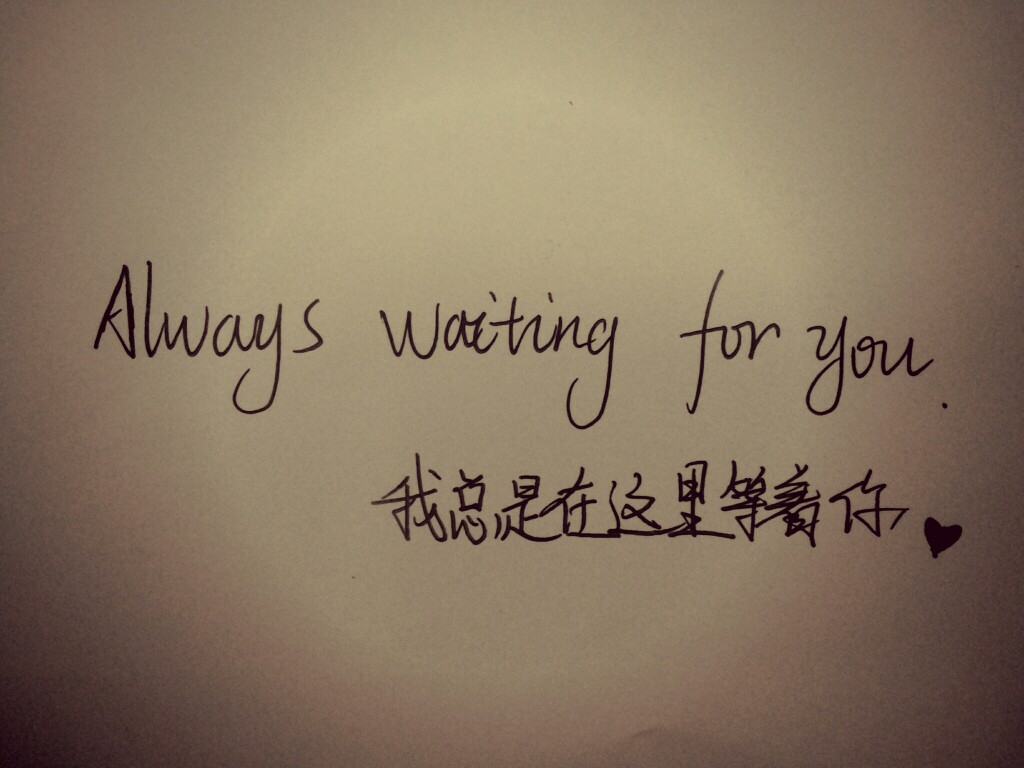 Always waiting for you.
我总是在这里等着你♥